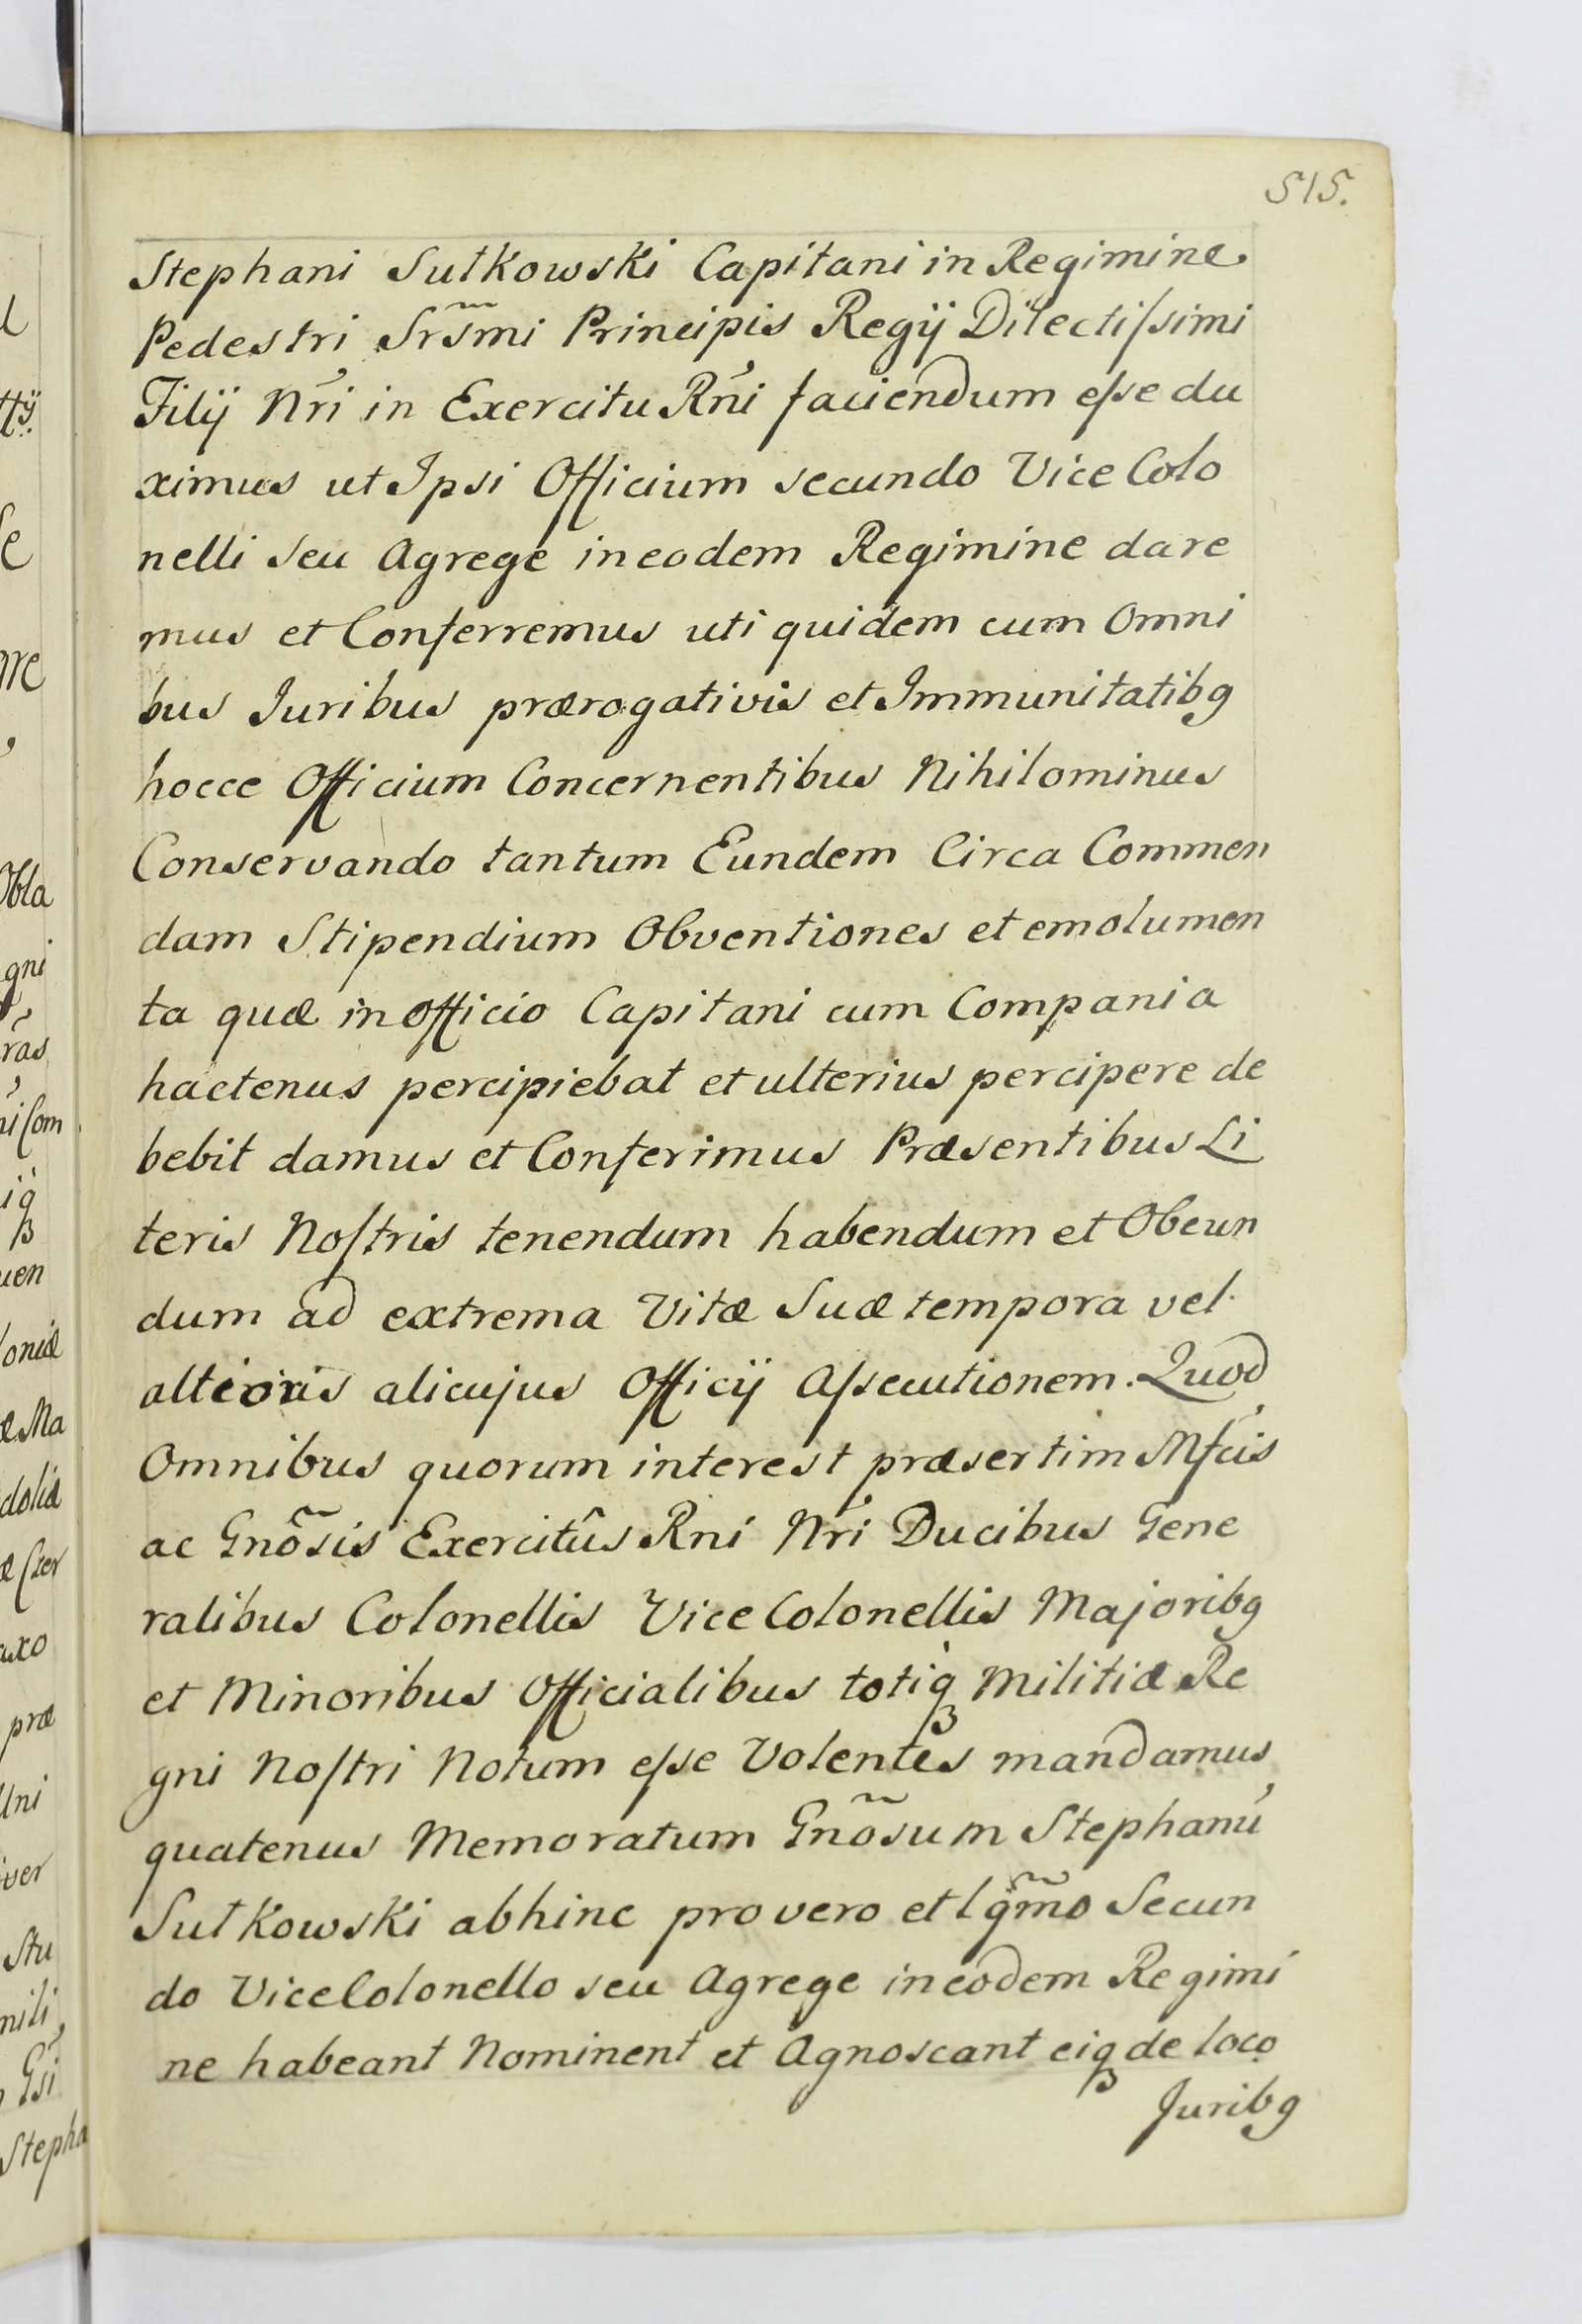 515.
Stephani Sutkowski Capitani in Regimine
Pedestri Srs̃mi Principis Regij Dilectiſsimi
Filij Nr̃i in Exercitu Rñi faciendum eſse du
ximus ut Ipsi Officium secundo Vice Colo
nelli seu Agregé in eodem Regimine dare
mus et Conferremus uti quidem cum Omni
bus Iuribus prærogativis et Immunitatibg
hocce Officium Concernentibus Nihilominus
Conservando tantum Eundem Circa Commen
dam Stipendium Obventiones et emolumen
ta quæ in officio Capitani cum Compania
hactenus percipiebat et ulterius percipere de
bebit damus et Conferimus Præsentibus Li
teris Noſtris tenendum habendum et Obeun
dum ad extrema Vitæ Suæ tempora vel
alterius alicujus Officij Aſsecutionem. Quod
Omnibus quorum interest præsertim Mfcis
ac Gnõsis Exercitûs Rni Nr̃i Ducibus Gene
ralibus Colonellis Vice Colonellis Majoribg
et Minoribus Officialibus totiq̀ꝫ Militiæ Re
gni Noſtri Notum eſse Volentes mandamus
quatenus Memoratum Gnõsum Stephanu̓
Sutkowski abhinc pro vero et lgm̃o Secun
do Vice Colonello seu Agrege in eodem Regimi
ne habeant Nominent et Agnoscant eiqꝫ de loco
Juribg